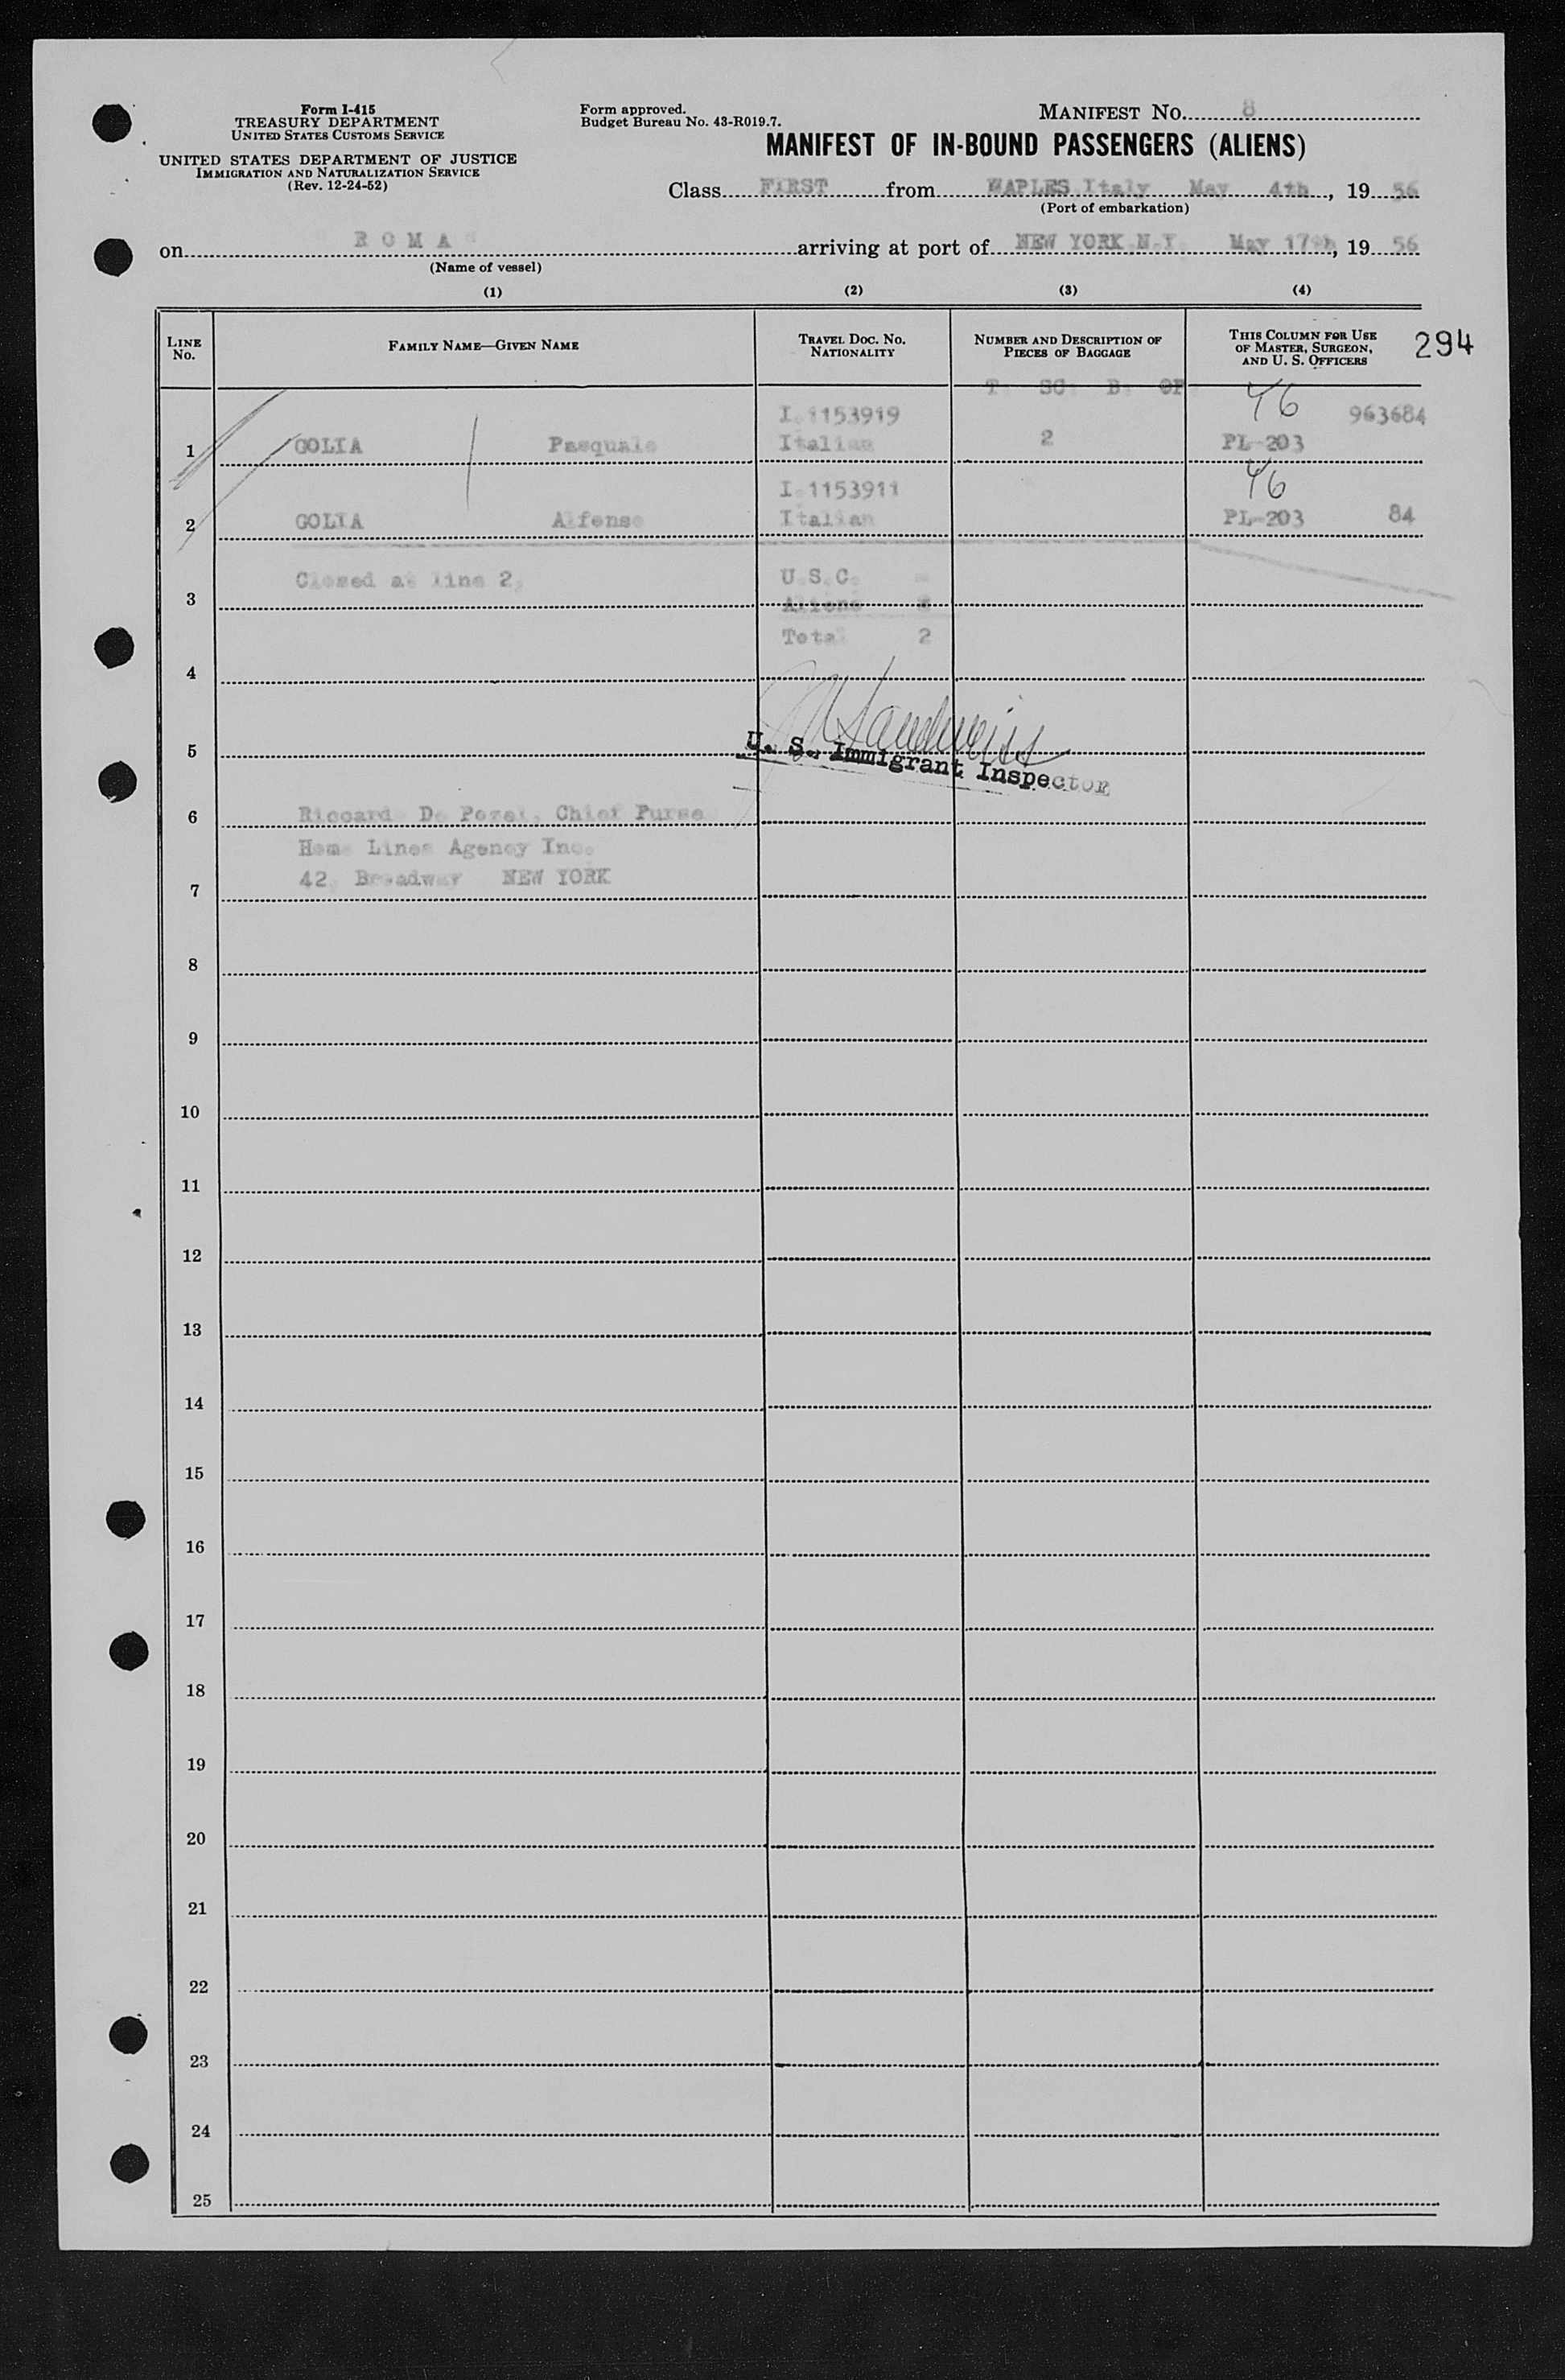 Form I-415
TREASURY DEPARTMENT
UNITED STATES CUSTOMS SERVICE
UNITED STATES DEPARTMENT OF JUSTICE
IMMIGRATION AND NATURALIZATION SERVICE
(Rev. 12-24-52)
Form approved.
Budget Bureau No. 43-R019.7.
MANIFEST NO. 8
MANIFEST OF IN-BOUND PASSENGERS (ALIENS)
Class FIRST from NAPLES Italy May 4th, 19 56
(Port of embarkation)
on ROMA arriving at port of NEW YORK N.Y. May 17th, 19 56
(Name of vessel)
(1) (2) (3) (4)
LINE NO.
FAMILY NAME—GIVEN NAME
TRAVEL DOC. NO.
NATIONALITY
NUMBER AND DESCRIPTION OF
PIECES OF BAGGAGE
THIS COLUMN FOR USE
OF MASTER, SURGEON,
AND U. S. OFFICERS
294
T. SC. B. OP.
I.1153919 46 963684
1 GOLIA Pasquale Italian 2 PL-203
I.1153911 46
2 GOLIA Alfonso Italian PL-203 84
Closed at line 2, U.S.C. -
3 Aliens 2
Total 2
4
5 U. S. Immigrant Inspector
6 Chief Purse
Home Lines Agency Inc.
42, Broadway NEW YORK
7
8
9
10
11
12
13
14
15
16
17
18
19
20
21
22
23
24
25